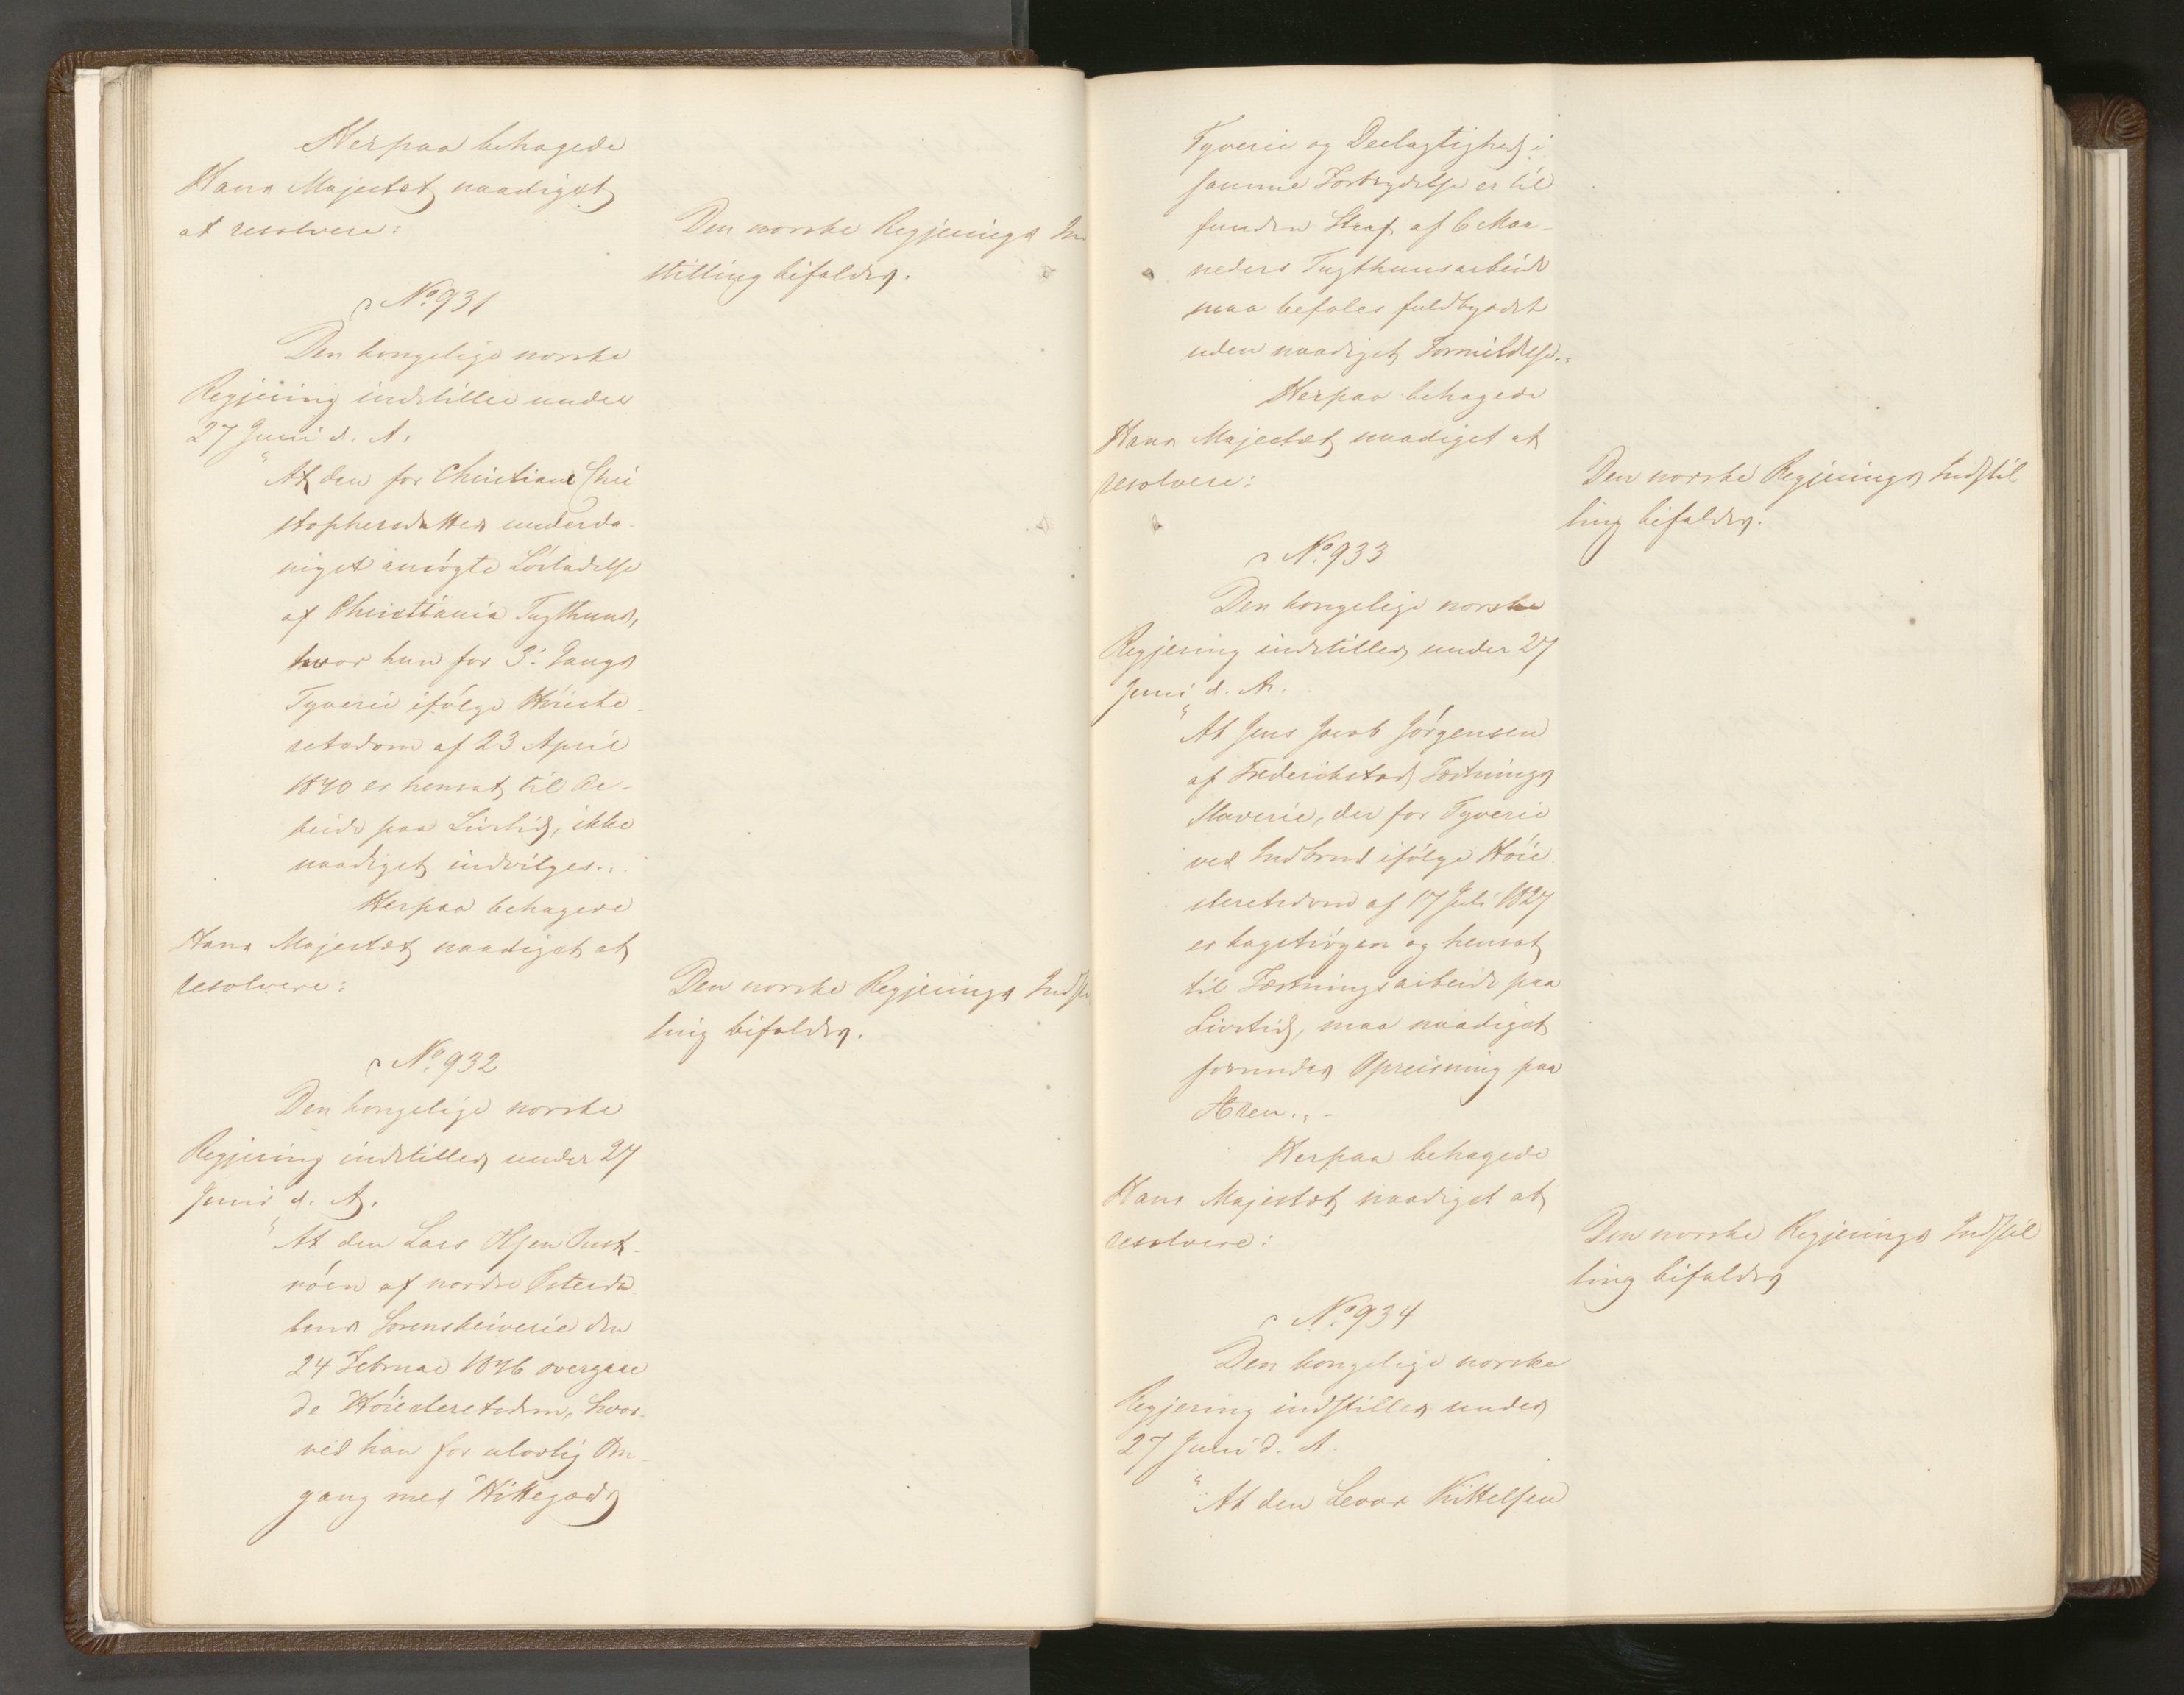 Herpaa behagede
Hans Majestæt naadigst
at resolvere:
Den norske Regjerings In
stilling bifaldes.
No. 931
Den kongelige norske
Regjering indstiller under
27 Juni d. A.
"At den for Christiane Chri
stophersdatter underda-
nigst ansögte Lösladelse
af Christiania Tugthuus,
hvor hun for 3. Gangs
Tyverie ifölge Höieste-
retsdom af 23 April
1840 er hensat til Ar-
beide paa Livstid, ikke
naadigst indvilges."
Herpaa behagede
Hans Majestæt naadigst at
resolvere:
Den norske Regjerings Indstil
ling bifaldes.
No. 932
Den kongelige norske
Regjering indstiller under 27
Juni d. A.
"At den Lars Olsen
röen af nordre Österda
lens Sorenskriverie den
24 Februar 1846 overgaae
de Höiesteretsdom, hvor-
ved han for ulovlig Om-
gang med Hittegods,
Tyverie og Deelagtighed i
samme Forbrydelse er til
funden Straf af 6 Maa-
neders Tugthuusarbeide
maa befales fuldbyrdet
uden naadigst Formildelse."
Herpaa behagede
Hans Majestæt naadigst at
resolvere:
Den norske Regjerings Indstil
ling bifaldes.
No. 933
Den kongelige norske
Regjering indstiller under 27
Juni d. A.
"At Jens Jacob Jörgensen
af Frederikstad Fæstnings
Slaverie, der for Tyverie
ved Indbrud ifölge Höie
steretsdom af 17 Juli 1827
er kagströgen og hensat
til Fæstningsarbeide paa
Livstid, maa naadigst
forundes Opreisning paa
Æren."-
Herpaa behagede
Hans Majestæt naadigst at
resolvere:
Den norske Regjerings Indstil
ling bifaldes
No. 934
Den kongelige norske
Regjering indstiller under
27 Juni d. A.
"At den Levor Kittelsen